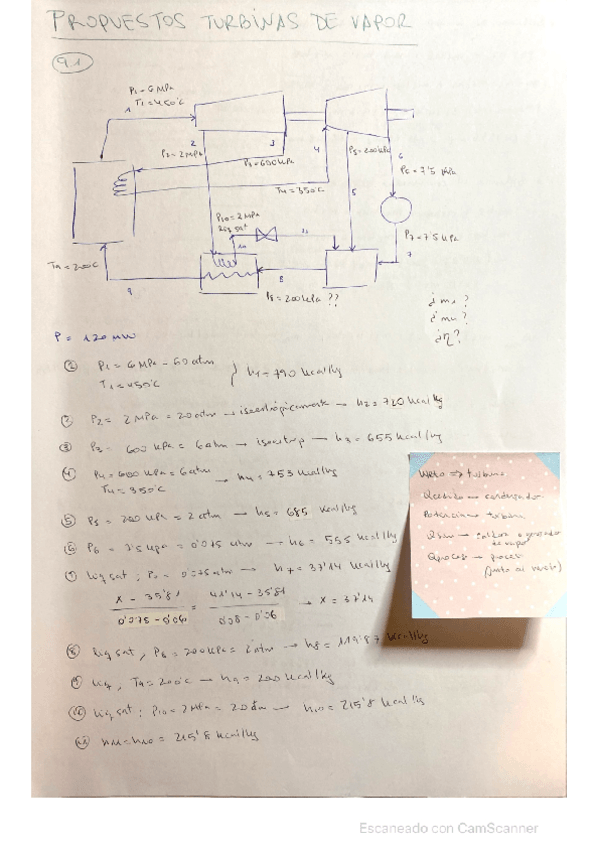 PROPUESTOS TURBINAS DE VAPOR
9.1
P1=6MPa
T1=450ºC
1
P2=2MPa
2
3
P3=600kPa
4
P5=200kPa
5
6
P6=7'5 kPa
T4=350ºC
P10=2MPa
liq sat
10
11
P7=7'5kPa
7
T9=200ºC
9
8
P8=200kPa ??
P = 120 MW
¿m1?
¿η?
① P1=6MPa - 60atm
T1=450ºC } h1=790 kcal/kg
② P2= 2MPa = 20atm → isentrópicamente → h2=720kcal/kg
③ P3= 600kPa = 6atm → isentrop → h3=655kcal/kg
④ P4=600kPa=6atm
T4=350ºC → h4=753 kcal/kg
⑤ P5= 200kPa = 2atm → h5=685 kcal/kg
⑥ P6= 7'5kpa = 0'075 atm → h6=555 kcal/kg
⑦ liq sat; P7= 0'075atm → h7=37'14 kcal/kg
X - 35'81 / 0'075-0'06 = 41'14-35'81 / 0'08-0'06 → X=37'14
⑧ liq sat, P8=200kPa=2atm → h8=119'87 kcal/kg
⑨ liq, T9=200ºC → h9=200kcal/kg
⑩ liq sat; P10=2MPa=20atm → h10=215'8 kcal/kg
⑪ h11=h10=215'8 kcal/kg
WNeto => turbina
Qcedido → condensador
Potencia → turbina
Qsum → caldera o generador
de vapor
Qproceso → proceso
(junto al vapor)
Escaneado con CamScanner